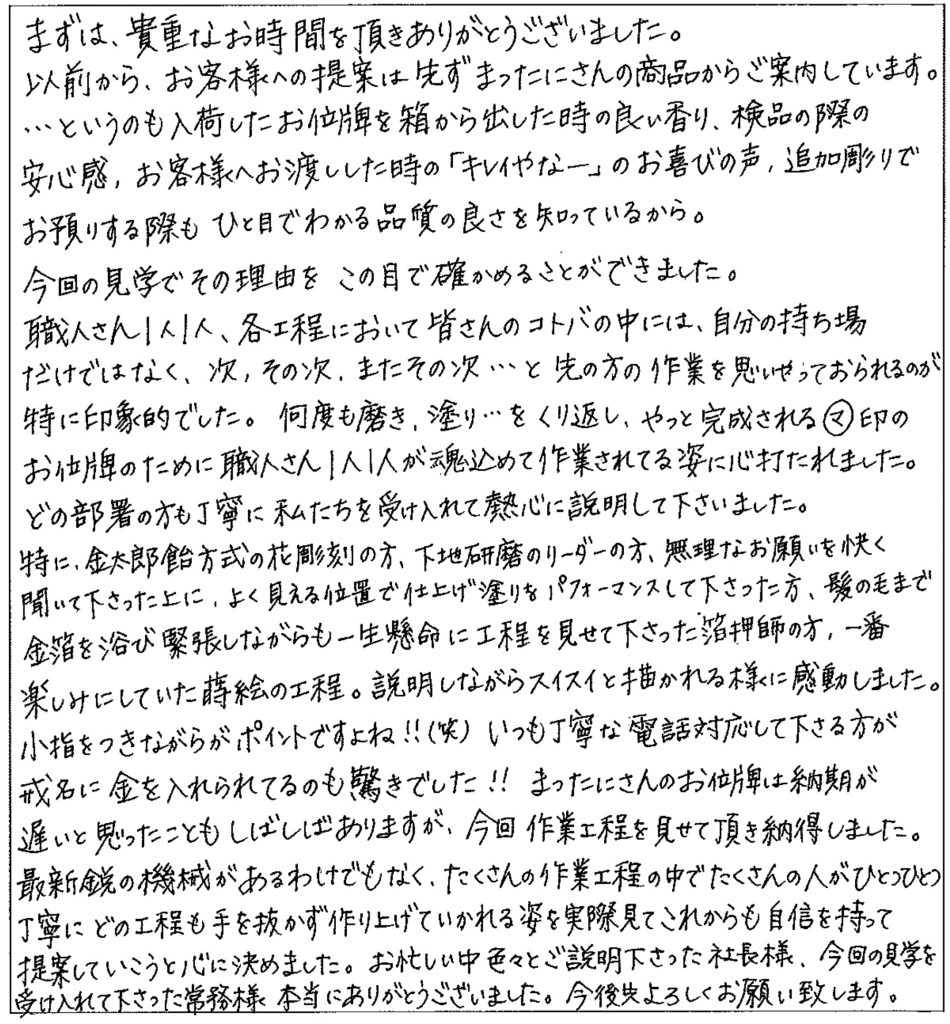 まずは、貴重なお時間を頂きありがとうございました。
以前から、お客様への提案は先ずまったにさんの商品からご案内しています。
…というのも入荷したお位牌を箱から出した時の良い香り、検品の際の
安心感、お客様へお渡しした時の「キレイやなー」のお喜びの声、追加彫りで
お預りする際も ひと目でわかる品質の良さを知っているから。
今回の見学でその理由を この目で確かめることができました。
職人さん1人1人、各工程において皆さんのコトバの中には、自分の持ち場
だけではなく、次、その次、またその次…と 先の方の作業を思いやっておられるのが
特に印象的でした。 何度も磨き、塗り…をくり返し、やっと完成される㋮印の
お位牌のために職人さん1人1人が魂込めて作業されてる姿に心打たれました。
どの部署の方も丁寧に私たちを受け入れて熱心に説明して下さいました。
特に、金太郎飴方式の花彫刻の方、下地研磨のリーダーの方、無理なお願いを快く
聞いて下さった上に、よく見える位置で仕上げ塗りをパフォーマンスして下さった方、髪の毛まで
金箔を浴び緊張しながらも一生懸命に工程を見せて下さった箔押師の方、一番
楽しみにしていた蒔絵の工程。説明しながらスイスイと描かれる様に感動しました。
小指をつきながらがポイントですよね!!(笑) いつも丁寧な電話対応して下さる方が
戒名に金を入れられてるのも驚きでした!! まったにさんのお位牌は納期が
遅いと思ったこともしばしばありますが、今回 作業工程を見せて頂き納得しました。
最新鋭の機械があるわけでもなく、たくさんの作業工程の中でたくさんの人がひとつひとつ
丁寧にどの工程も手を抜かず作り上げていかれる姿を実際見てこれからも自信を持って
提案していこうと心に決めました。お忙しい中色々とご説明下さった社長様、今回の見学を
受け入れて下さった常務様 本当にありがとうございました。今後共よろしくお願い致します。